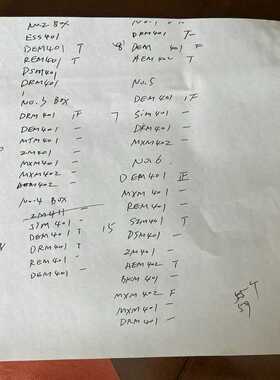 No.2 Box
ESS401
DEM401 T
REM401 T
DSM401
DRM401
No.3 Box
DRM 401 正
DEM401 -
MTM 401 -
ZM401 -
MXM401 -
MXM402 -
AEM402 -
No.4 Box
ZM411
SIM 401 -
DEM401 T
DRM401 T
REM 401 -
DBM401 -
DRM401 T
8 DEM 401 F
AEM 402 T
No.5
DEM 401 正
7 SIM 401 -
DRM401 -
MXM402 -
No.6.
DEM401 正
MXM 401 -
REM 401 -
15 SIM401 T
DSM401 -
ZM 401 -
AEM402 T
BKM 401 -
MXM 402 F
MXM401 -
DRM 401 -
59